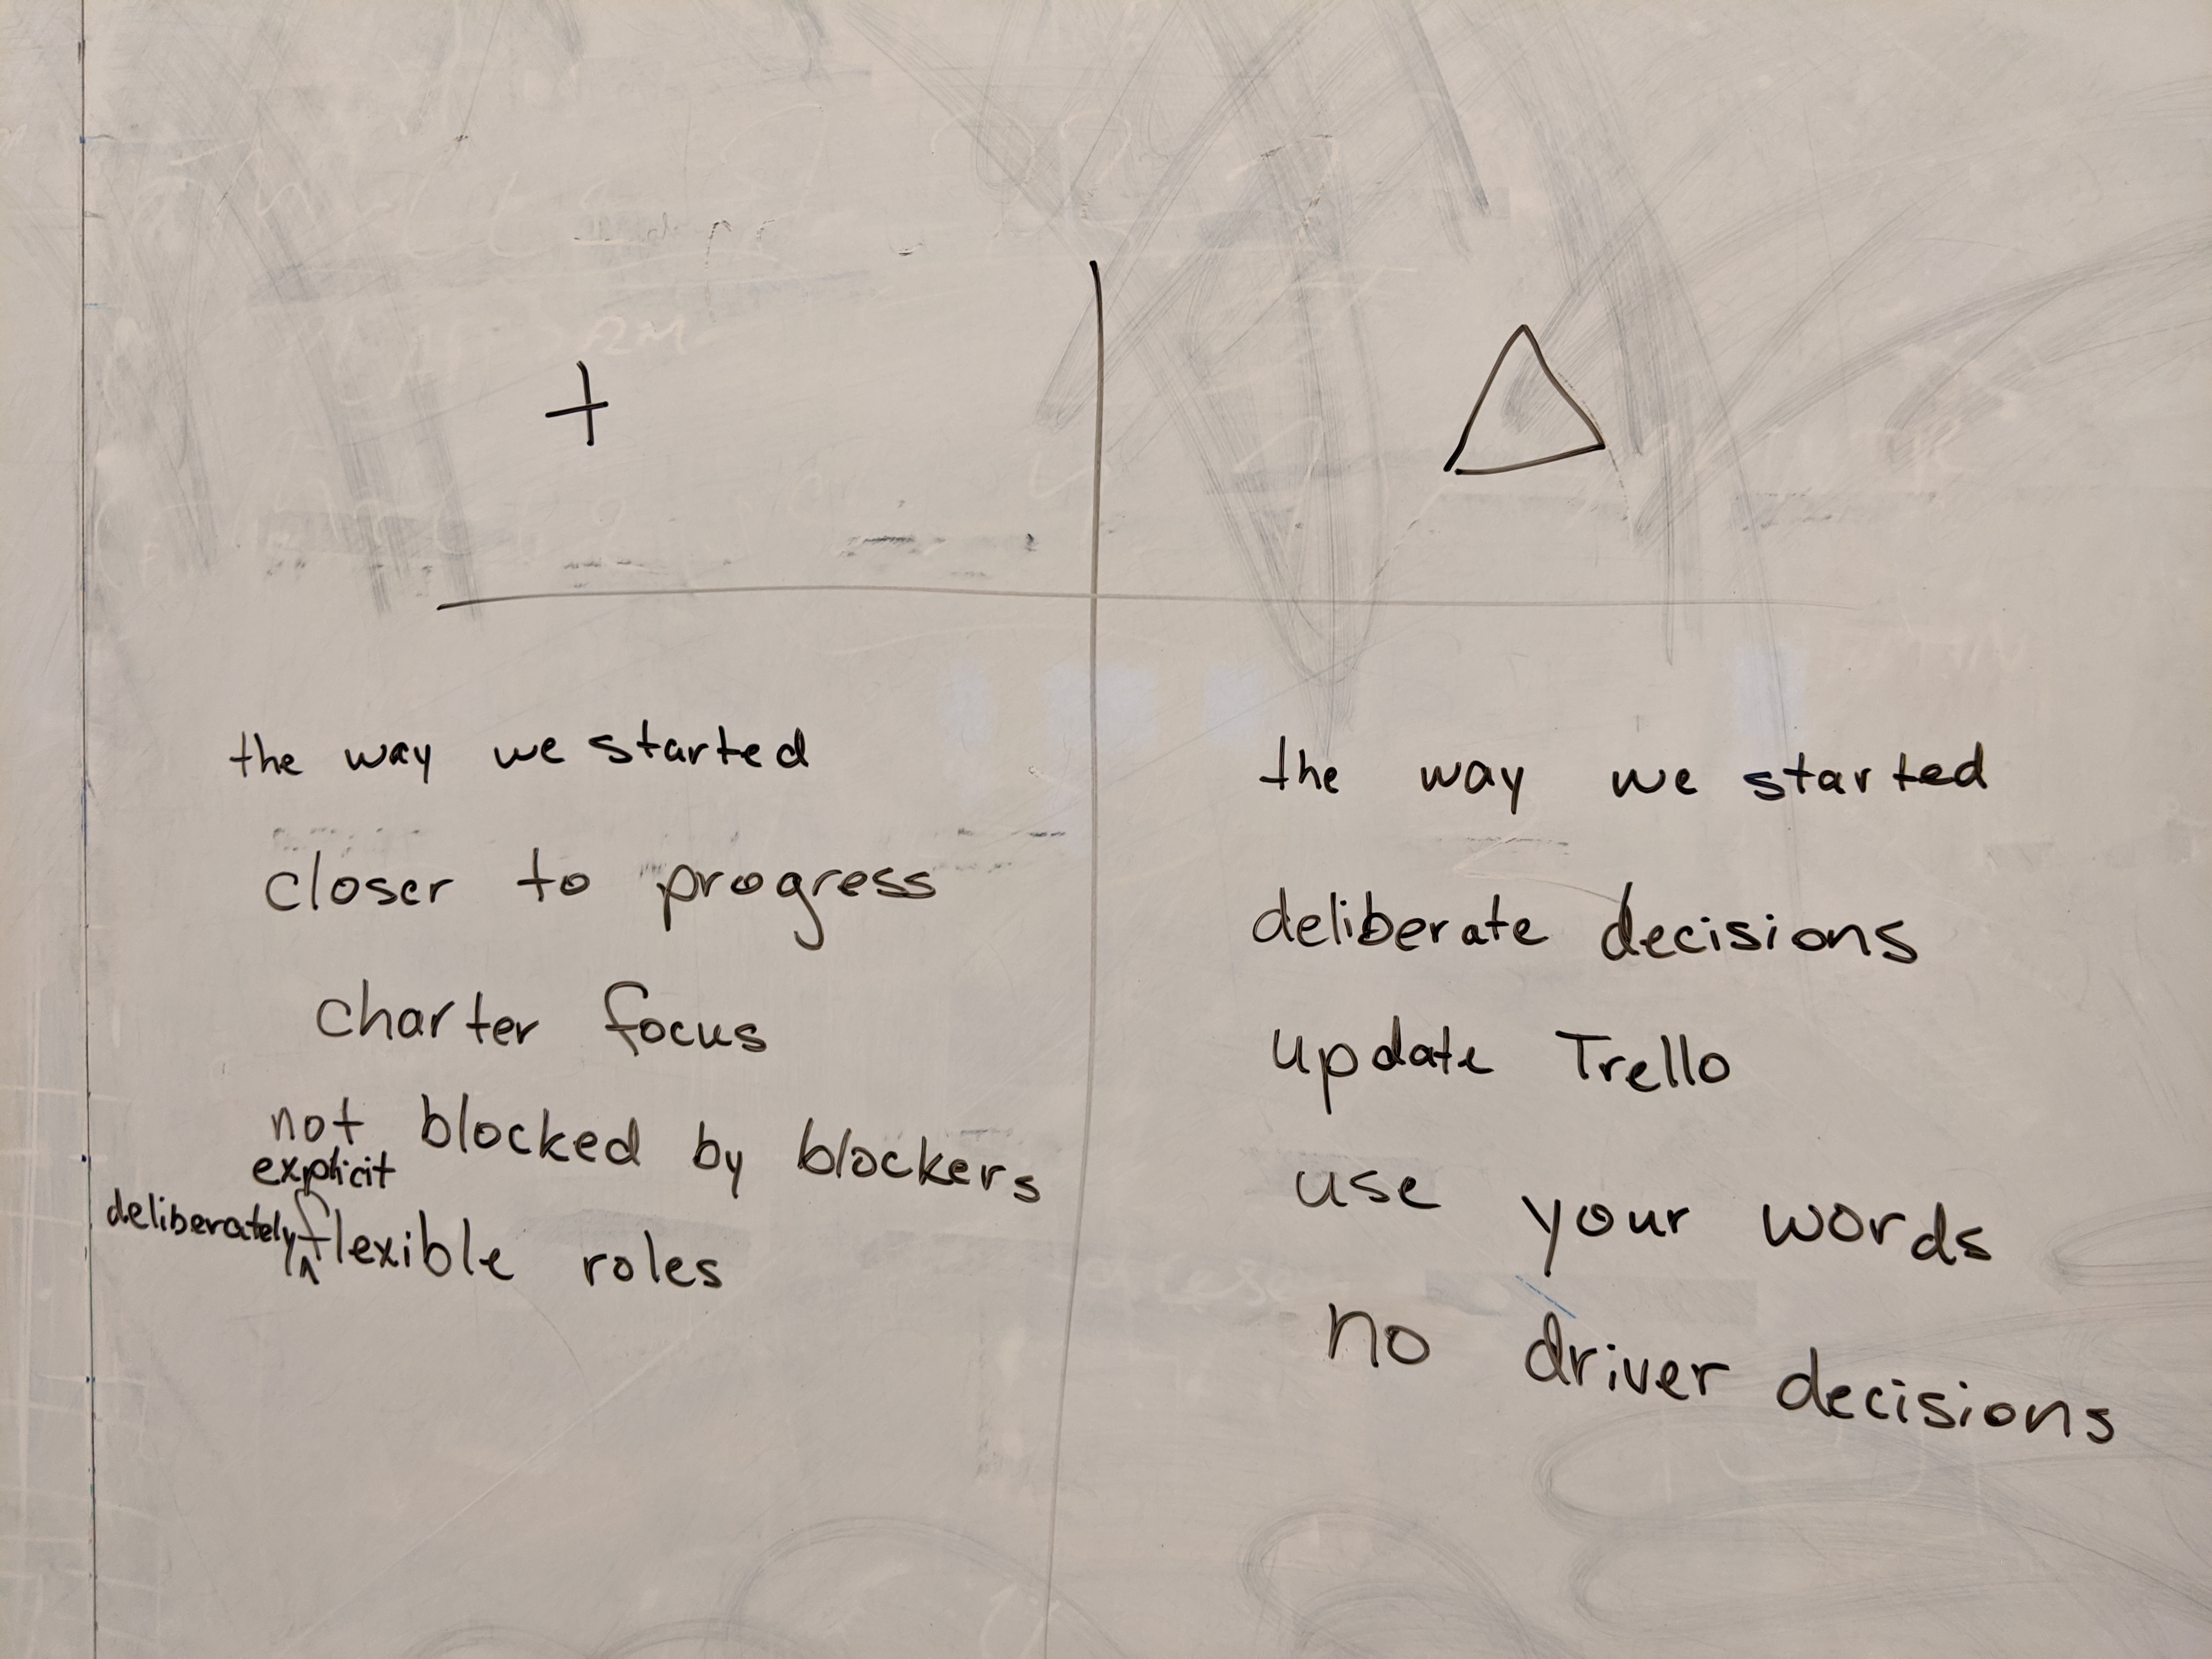 +
the way we started
closer to progress
charter focus
not blocked by blockers
explicit
deliberately ^ flexible roles
△
the way we started
deliberate decisions
update Trello
use your words
no driver decisions